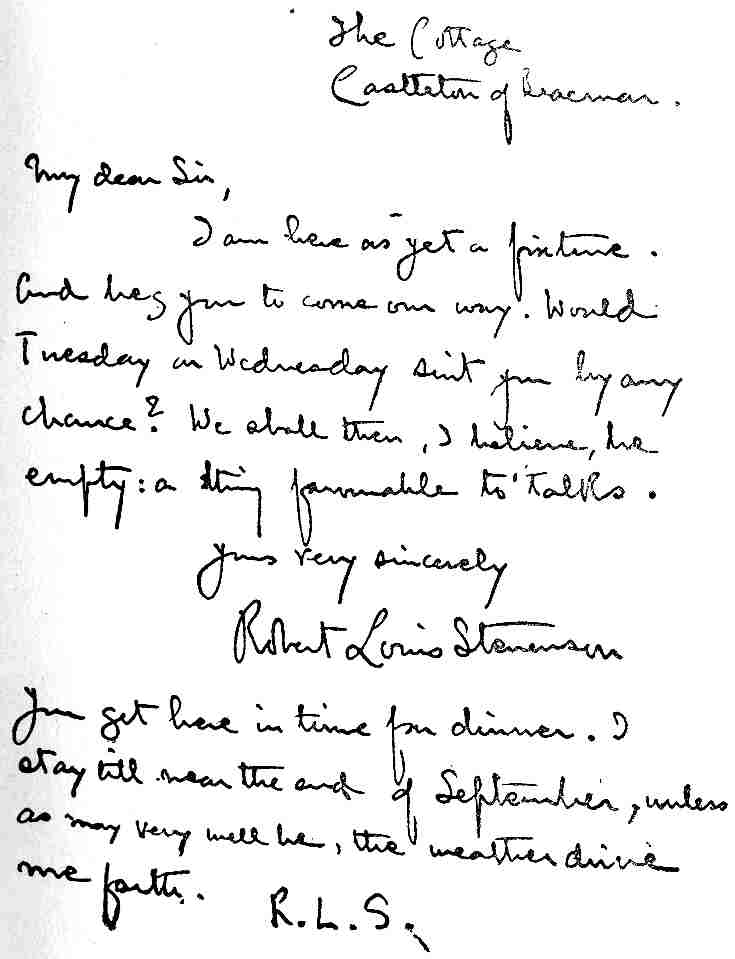 The Cottage
Castleton of Braemar.
My dear Sir,
I am here as yet a fixture.
And beg you to come our way. Would
Tuesday or Wednesday suit you by any
chance? We shall then, I believe, be
empty: a thing favourable to talks.
Yours very sincerely
Robert Louis Stevenson
You get here in time for dinner. I
stay till near the end of September, unless
as may very well be, the weather drive
me forth.
R.L.S.